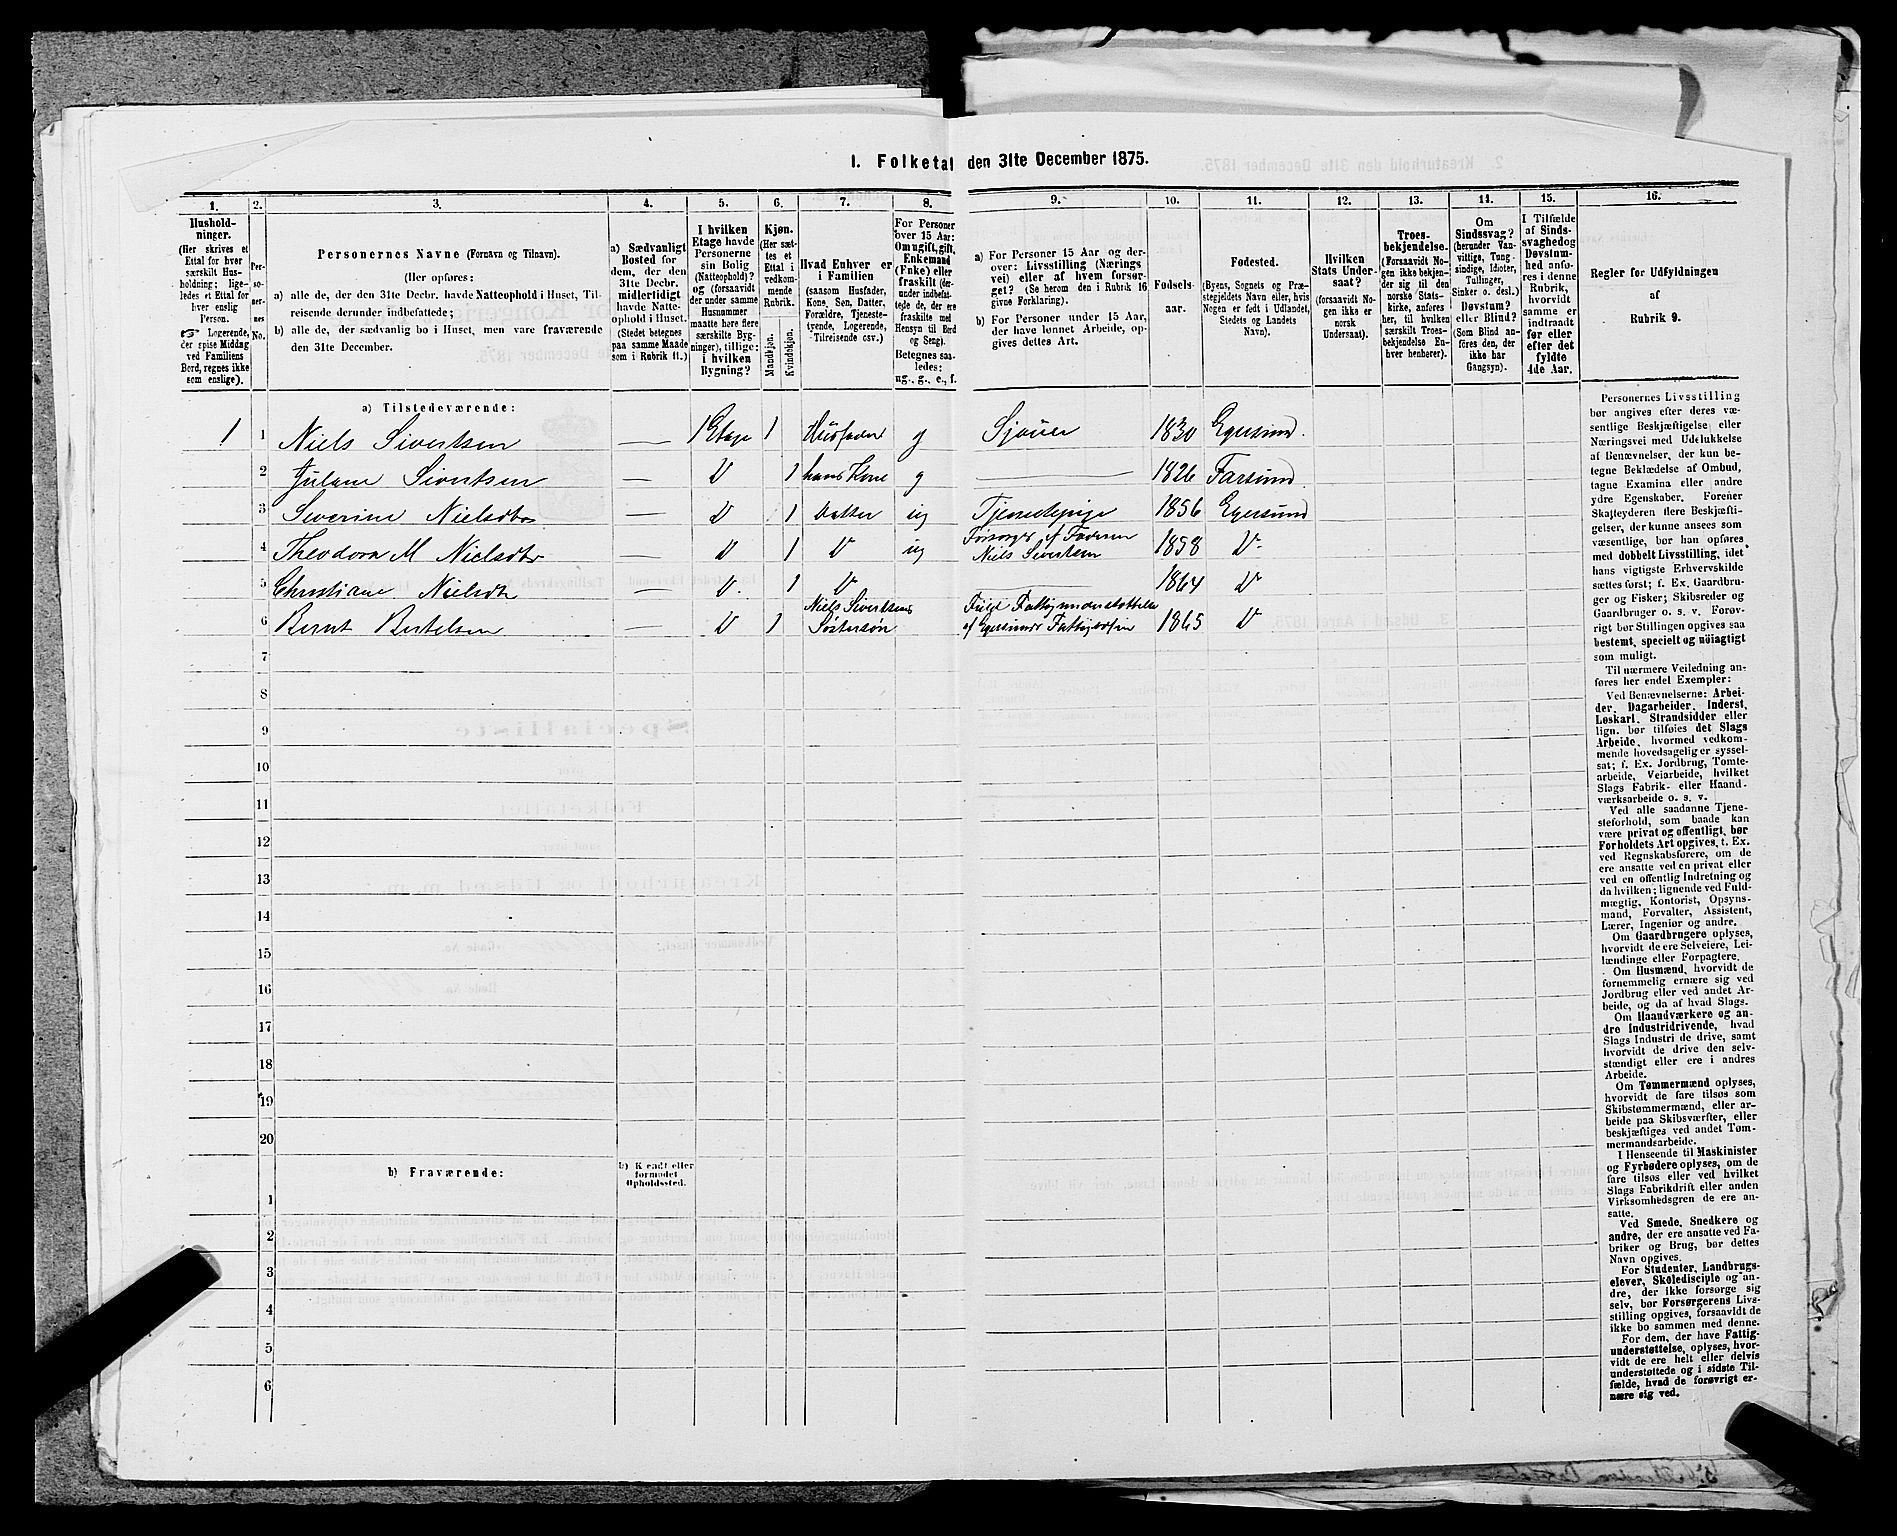 1. Folketal den 31te December 1875.
1. 2. 3. 4. 5. 6. 7. 8. 9. 10. 11. 12. 13. 14. 15. 16.
Hushold-
ninger.
(Her skrives et
Ettal for hver
særskilt Hus-
holdning; lige-
ledes et Ettal for
hver enslig
Person.
Logerende,
der spise Middag
ved Familiens
Bord, regnes ikke
som enslige).
Per-
so-
ner-
nes
No.
Personernes Navne (Fornavn og Tilnavn).
(Her opføres:
a) alle de, der den 31te Decbr. havde Natteophold i Huset, Til-
reisende derunder indbefattede;
b) alle de, der sædvanlig bo i Huset, men vare fraværende
den 31te December.
a) Sædvanligt
Bosted for
dem, der den
31te Decbr.
midlertidigt
havde Natte-
ophold i Huset.
(Stedet betegnes
paa samme Maade
som i Rubrik 11.)
I hvilken
Etage havde
Personerne
sin Bolig
(Natteophold)?
og (forsaavidt
der under samme
Husnummer
maatte høre flere
særskilte Byg-
ninger), tillige:
i hvilken
Bygning?
Kjøn.
(Her sæt-
tes et
Ettal i
vedkom-
mende
Rubrik.
Mandkjøn.
Kvindekjøn.
Hvad Enhver er
i Familien
(saasom Husfader,
Kone, Søn, Datter,
Forældre, Tjeneste-
tyende, Logerende,
Tilreisende osv.)
For Personer
over 15 Aar:
Om ugift, gift,
Enkemand
(Enke) eller
fraskilt
(derunder indbefat-
tede de, der ere
fraskilte med
Hensyn til Bord
og Seng).
Betegnes saa-
ledes:
ug., g., e., f.
a) For Personer 15 Aar og der-
over: Livsstilling (Nærings
vei) eller af hvem forsør-
get? (Se herom den i Rubrik 16
givne Forklaring).
b) For Personer under 15 Aar,
der have lønnet Arbeide, op-
gives dettes Art.
Fødsels-
aar.
Fødested.
(Byens, Sognets og Præ-
stegjeldets Navn eller, hvis
Nogen er født i Udlandet,
Stedets og Landets
Navn).
Hvilken
Stats Under-
saat?
(forsaavidt No-
gen ikke er
norsk
Undersaat).
Troes-
bekjendelse.
(Forsaavidt No-
gen ikke bekjen-
der sig til den
norske Stats-
kirke, anføres
her, til hvilken
særskilt Troes-
bekjendelse En-
hver henhører).
Om
Sindssvag?
(herunder Van-
vittige, Tung-
sindige, Idioter,
Tullinger,
Sinker o. desl.)
Døvstum?
eller Blind?
(Som Blind an-
føres den, der
ikke har
Gangsyn).
I Tilfælde
af Sinds-
svaghed og
Døvstum-
hed anfø-
res i denne
Rubrik,
hvorvidt
samme er
indtraadt
før eller
efter det
fyldte
4de Aar.
Regler for Udfyldningen
af
Rubrik 9.
a) Tilstedeværende:
1 1 Niels Sivertsen — 1 Etage 1 Husfader g Sjouer 1830 Egersund.
2 Julane Sivertsen — D 1 hans Kone g — 1826 Farsund.
3 Severine Nielsdtr — D 1 Datter ug Tjenestepige 1856 Egersund
4 Theodora M Nielsdtr — D 1 D ug Forsørges af Faderen Niels Sivertsen 1858 D.
5 Christiane Nielsdtr — D. 1 D — 1864 D
6 Bernt Bertelsen — D 1 Niels Sivertsens Søstersøn Fuld Fattigunderstøttelse af Egersunds Fattigvæsen 1865 D
7
8
9
10
11
12
13
14
15
16
17
18
19
20
b) Fraværende:
b) Kjendt eller
formodet
Opholdssted.
1
2
3
4
5
6
Personernes Livsstilling
bør angives efter deres væ-
sentlige Beskjæftigelse eller
Næringsvei med Udelukkelse
af Benævnelser, der kun be-
tegne Beklædelse af Ombud,
tagne Examina eller andre
ydre Egenskaber. Forener
Skatteyderen flere Beskjæfti-
gelser, der kunne ansees som
væsentlige, bør han opføres
med dobbelt Livsstilling, idet
hans vigtigste Erhvervskilde
sættes først; f. Ex. Gaardbru-
ger og Fisker; Skibsreder og
Gaardbruger o. s. v. Forøv-
rigt bør Stillingen opgives saa
bestemt, specielt og nøiagtigt
som muligt.
Til nærmere Veiledning an-
føres her endel Exempler:
Ved Benævnelserne: Arbei-
der, Dagarbeider, Inderst,
Løskarl, Strandsidder eller
lign. bør tilføies det Slags
Arbeide, hvormed vedkom-
mende hovedsagelig er syssel-
sat; f. Ex. Jordbrug, Tomte-
arbeide, Veiarbeide, hvilket
Slags Fabrik- eller Haand-
værksarbeide o. s. v.
Ved alle saadanne Tjene-
steforhold, som baade kan
være privat og offentligt, bør
Forholdets Art opgives, t. Ex.
ved Regnskabsførere, om de
ere ansatte ved en privat eller
ved en offentlig Indretning og
da hvilken; lignende ved Fuld-
mægtig, Kontorist, Opsyns-
mand, Forvalter, Assistent,
Lærer, Ingeniør og andre.
Om Gaardbrugere oplyses,
hvorvidt de ere Selveiere, Lei-
lændinge eller Forpagtere.
Om Husmænd, hvorvidt de
fornemmelig ernære sig ved
Jordbrug eller ved andet Ar-
beide, og da af hvad Slags.
Om Haandværkere og an-
dre Industridrivende, hvad
Slags Industri de drive, samt
hvorvidt de drive den selv-
stændigt eller ere i andres
Arbeide.
Om Tømmermænd oplyses,
hvorvidt de fare tilsøs som
Skibstømmermænd, eller ar-
beide paa Skibsværfter, eller
beskjæftiges ved andet Tøm-
mermandsarbeide.
I Henseende til Maskinister
og Fyrbødere oplyses, om de
fare tilsøs eller ved hvilket
Slags Fabrikdrift eller anden
Virksomhedsgren de ere an-
satte.
Ved Smede, Snedkere og
andre, der ere ansatte ved Fa-
briker og Brug, bør dettes
Navn opgives.
For Studenter, Landbrugs-
elever, Skoledisciple og an-
dre, der ikke forsørge sig
selv, bør Forsørgerens Livs-
stilling opgives, forsaavidt de
ikke bo sammen med denne.
For dem, der have Fattig-
understøttelse, oplyses, hvor-
vidt de ere helt eller delvis
understøttede og i sidste Til-
fælde, hvad de forøvrigt er-
nære sig ved.